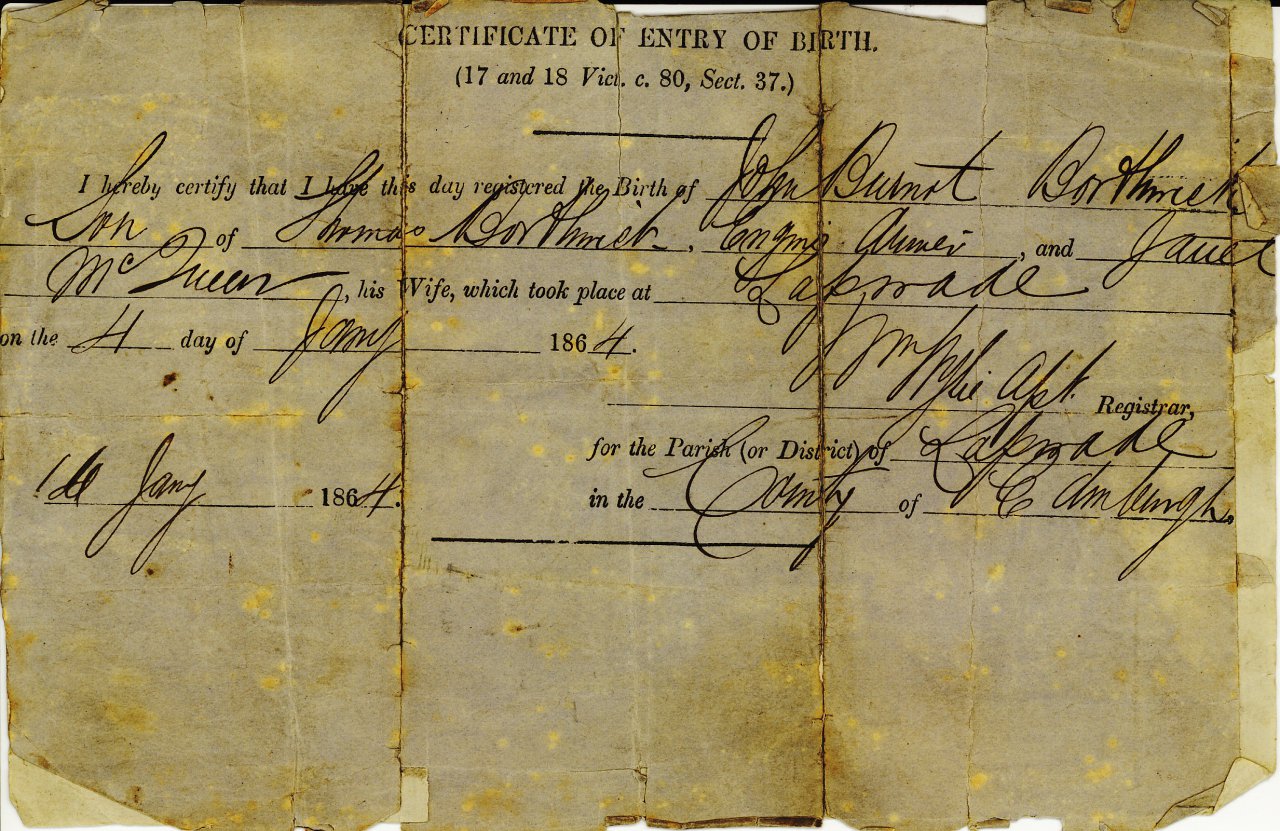 CERTIFICATE OF ENTRY OF BIRTH.
(17 and 18 Vict. c. 80, Sect. 37.)
I hereby certify that I have this day registered the Birth of John Burnet Borthwick
Son of Thomas Borthwick, Engine , and Janet
McQueen, his Wife, which took place at Lasswade
on the 4 day of Jany 1864.
Wm Wylie Asst. Registrar,
for the Parish (or District) of Lasswade
16 Jany 1864. in the County of Edinburgh.